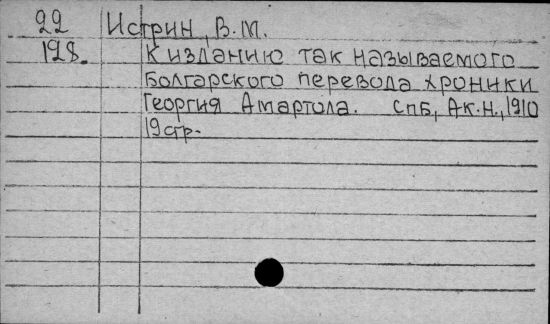 22 Истрин, В.М.
128. К изданию так называемого
Болгарского перевода хроники
Георгия Амартола. СПБ, Ак.Н., 1910
19 стр.